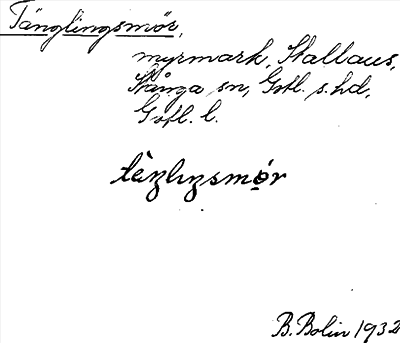 Tänglingsmör,
myrmark, Stallaus,
Stånga sn, Gotl. s. hd,
Gotl. l.
tèŋlıŋsmọr
B. Bolin 1932